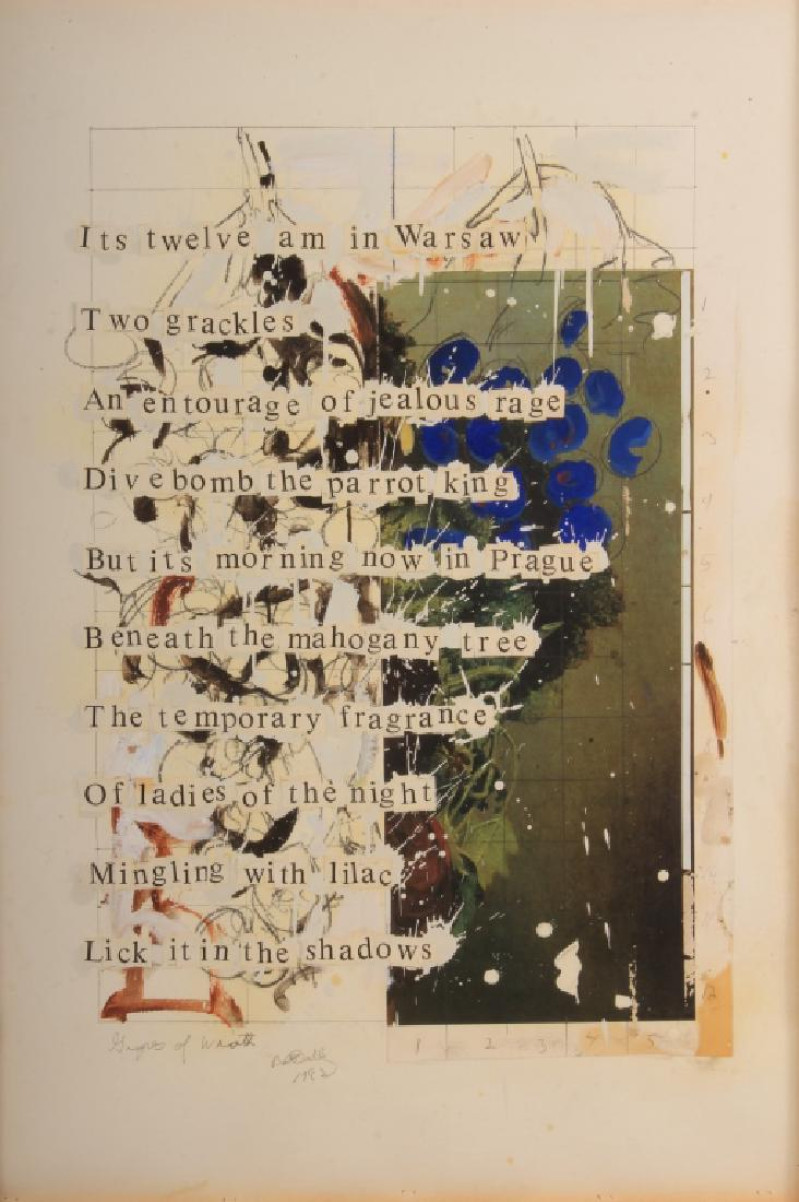 Its twelve am in Warsaw
Two grackles
An entourage of jealous rage
Dive bomb the parrot king
But its morning now in Prague
Beneath the mahogany tree
The temporary fragrance
Of ladies of the night
Mingling with lilac
Lick it in the shadows
Grapes of Wrath
1992
1 2 3 4 5
1
2
3
4
5
12